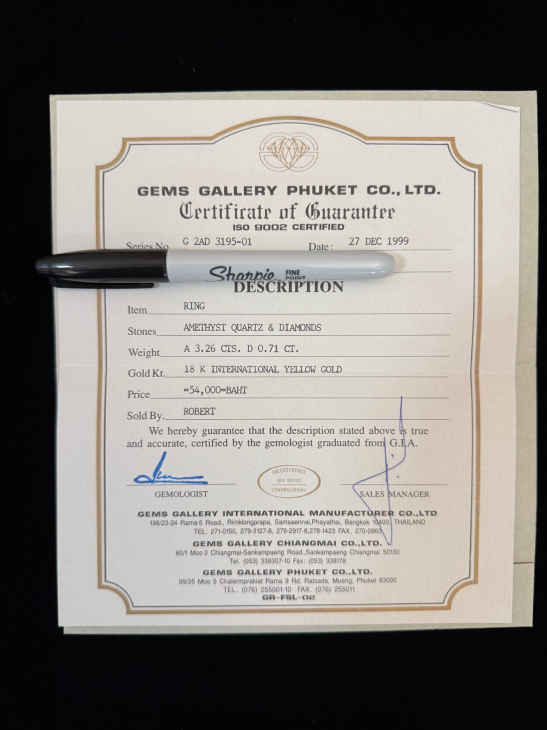 GEMS GALLERY PHUKET CO., LTD.
Certificate of Guarantee
ISO 9002 CERTIFIED
Series No G 2AD 3195-01 Date: 27 DEC 1999
Sharpie FINE POINT
DESCRIPTION
Item RING
Stones AMETHYST QUARTZ & DIAMONDS
Weight A 3.26 CTS. D 0.71 CT.
Gold Kt. 18 K INTERNATIONAL YELLOW GOLD
Price =54,000=BAHT
Sold By. ROBERT
We hereby guarantee that the description stated above is true
and accurate, certified by the gemologist graduated from G.I.A.
GEMOLOGIST SALES MANAGER
GEMS GALLERY INTERNATIONAL MANUFACTURER CO.,LTD
Road., Rimklongprapa, Samsaennai,Phayathai, Bangkok 10400, THAILAND
TEL. FAX.
GEMS GALLERY CHIANGMAI CO.,LTD.
80/1 Moo 2 Chiangmai-Sankampaeng Road.,Sankampaeng Chiangmai 50130
Tel. (053) 339307-10 Fax: (053)
GEMS GALLERY PHUKET CO.,LTD.
99/35 Moo 5 Chalermprakiat Rama 9 Rd. Ratsada, Muang, Phuket 83000
TEL. (076) 255001-10 FAX. (076) 255011
GR-FSL-02